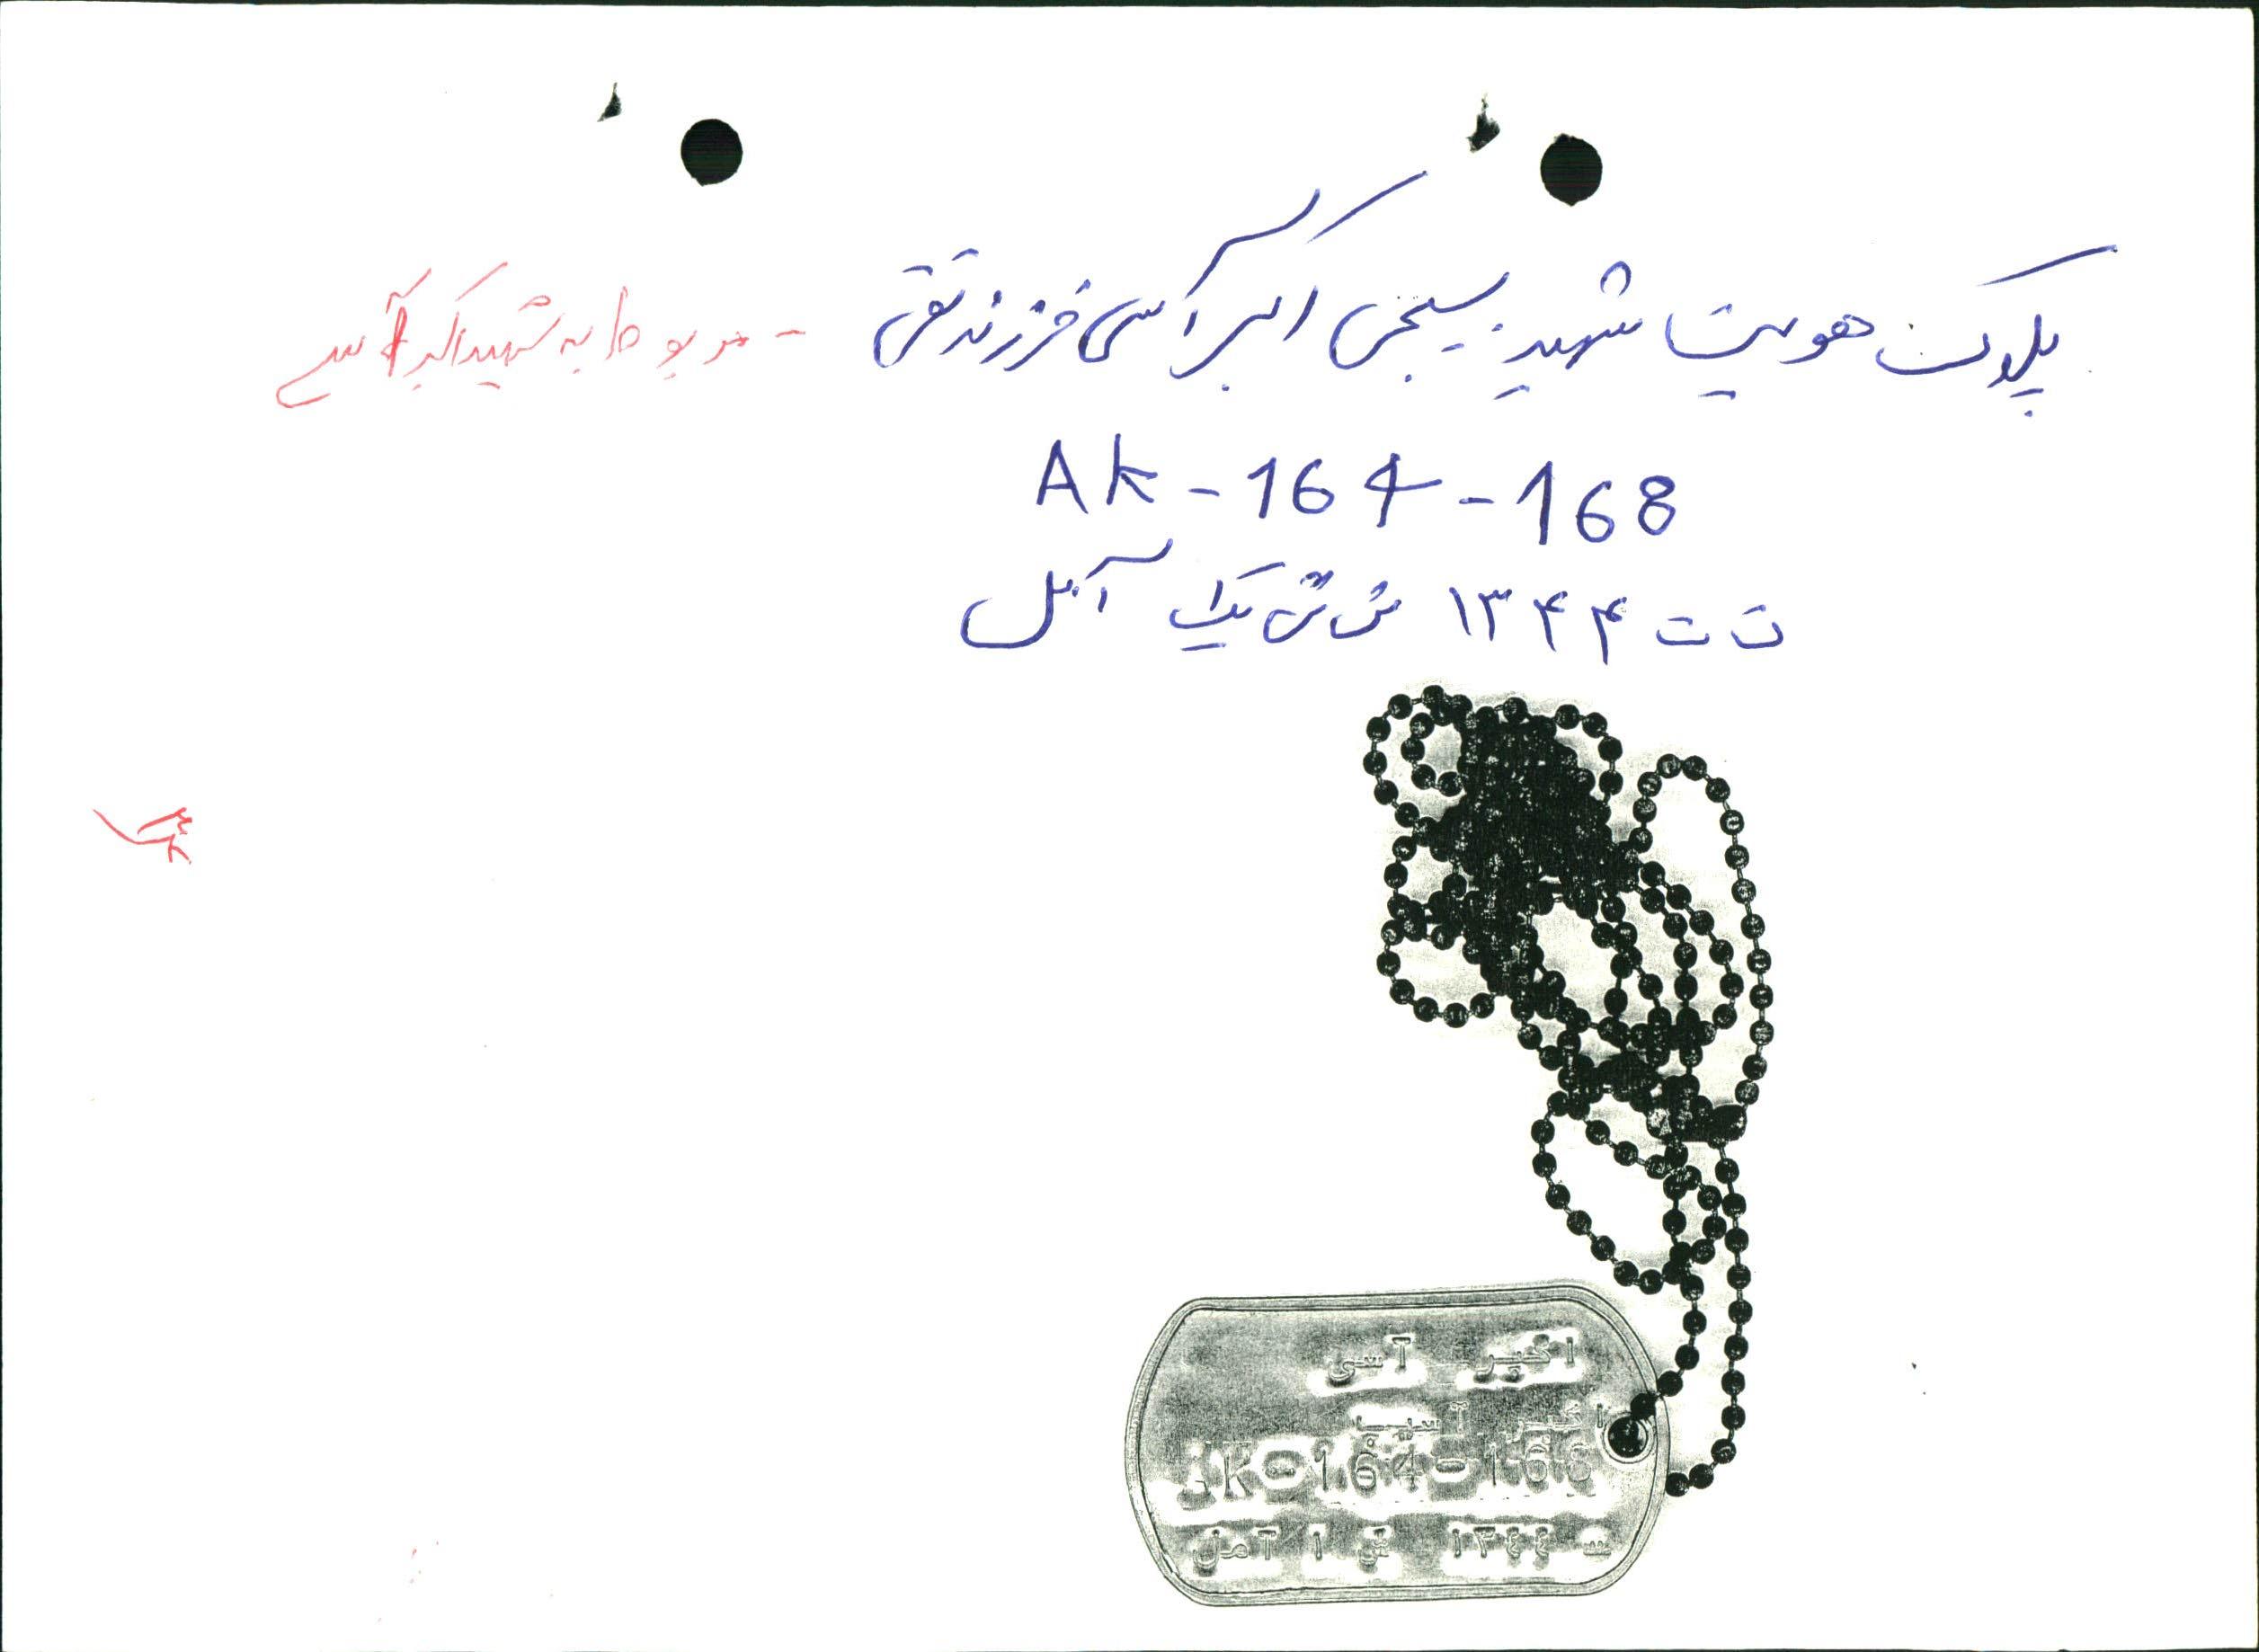 پلاک هویت شهید بسیجی اکبر آسی فرزند تقی - مربوط به شهید اکبر آسی
AK-164-168
ت ت ۱۳۴۴ ش ش یک آمل
اکبر آسی
اکبر
AK-164-166
۱۳٤٤ ش ۱ آمل